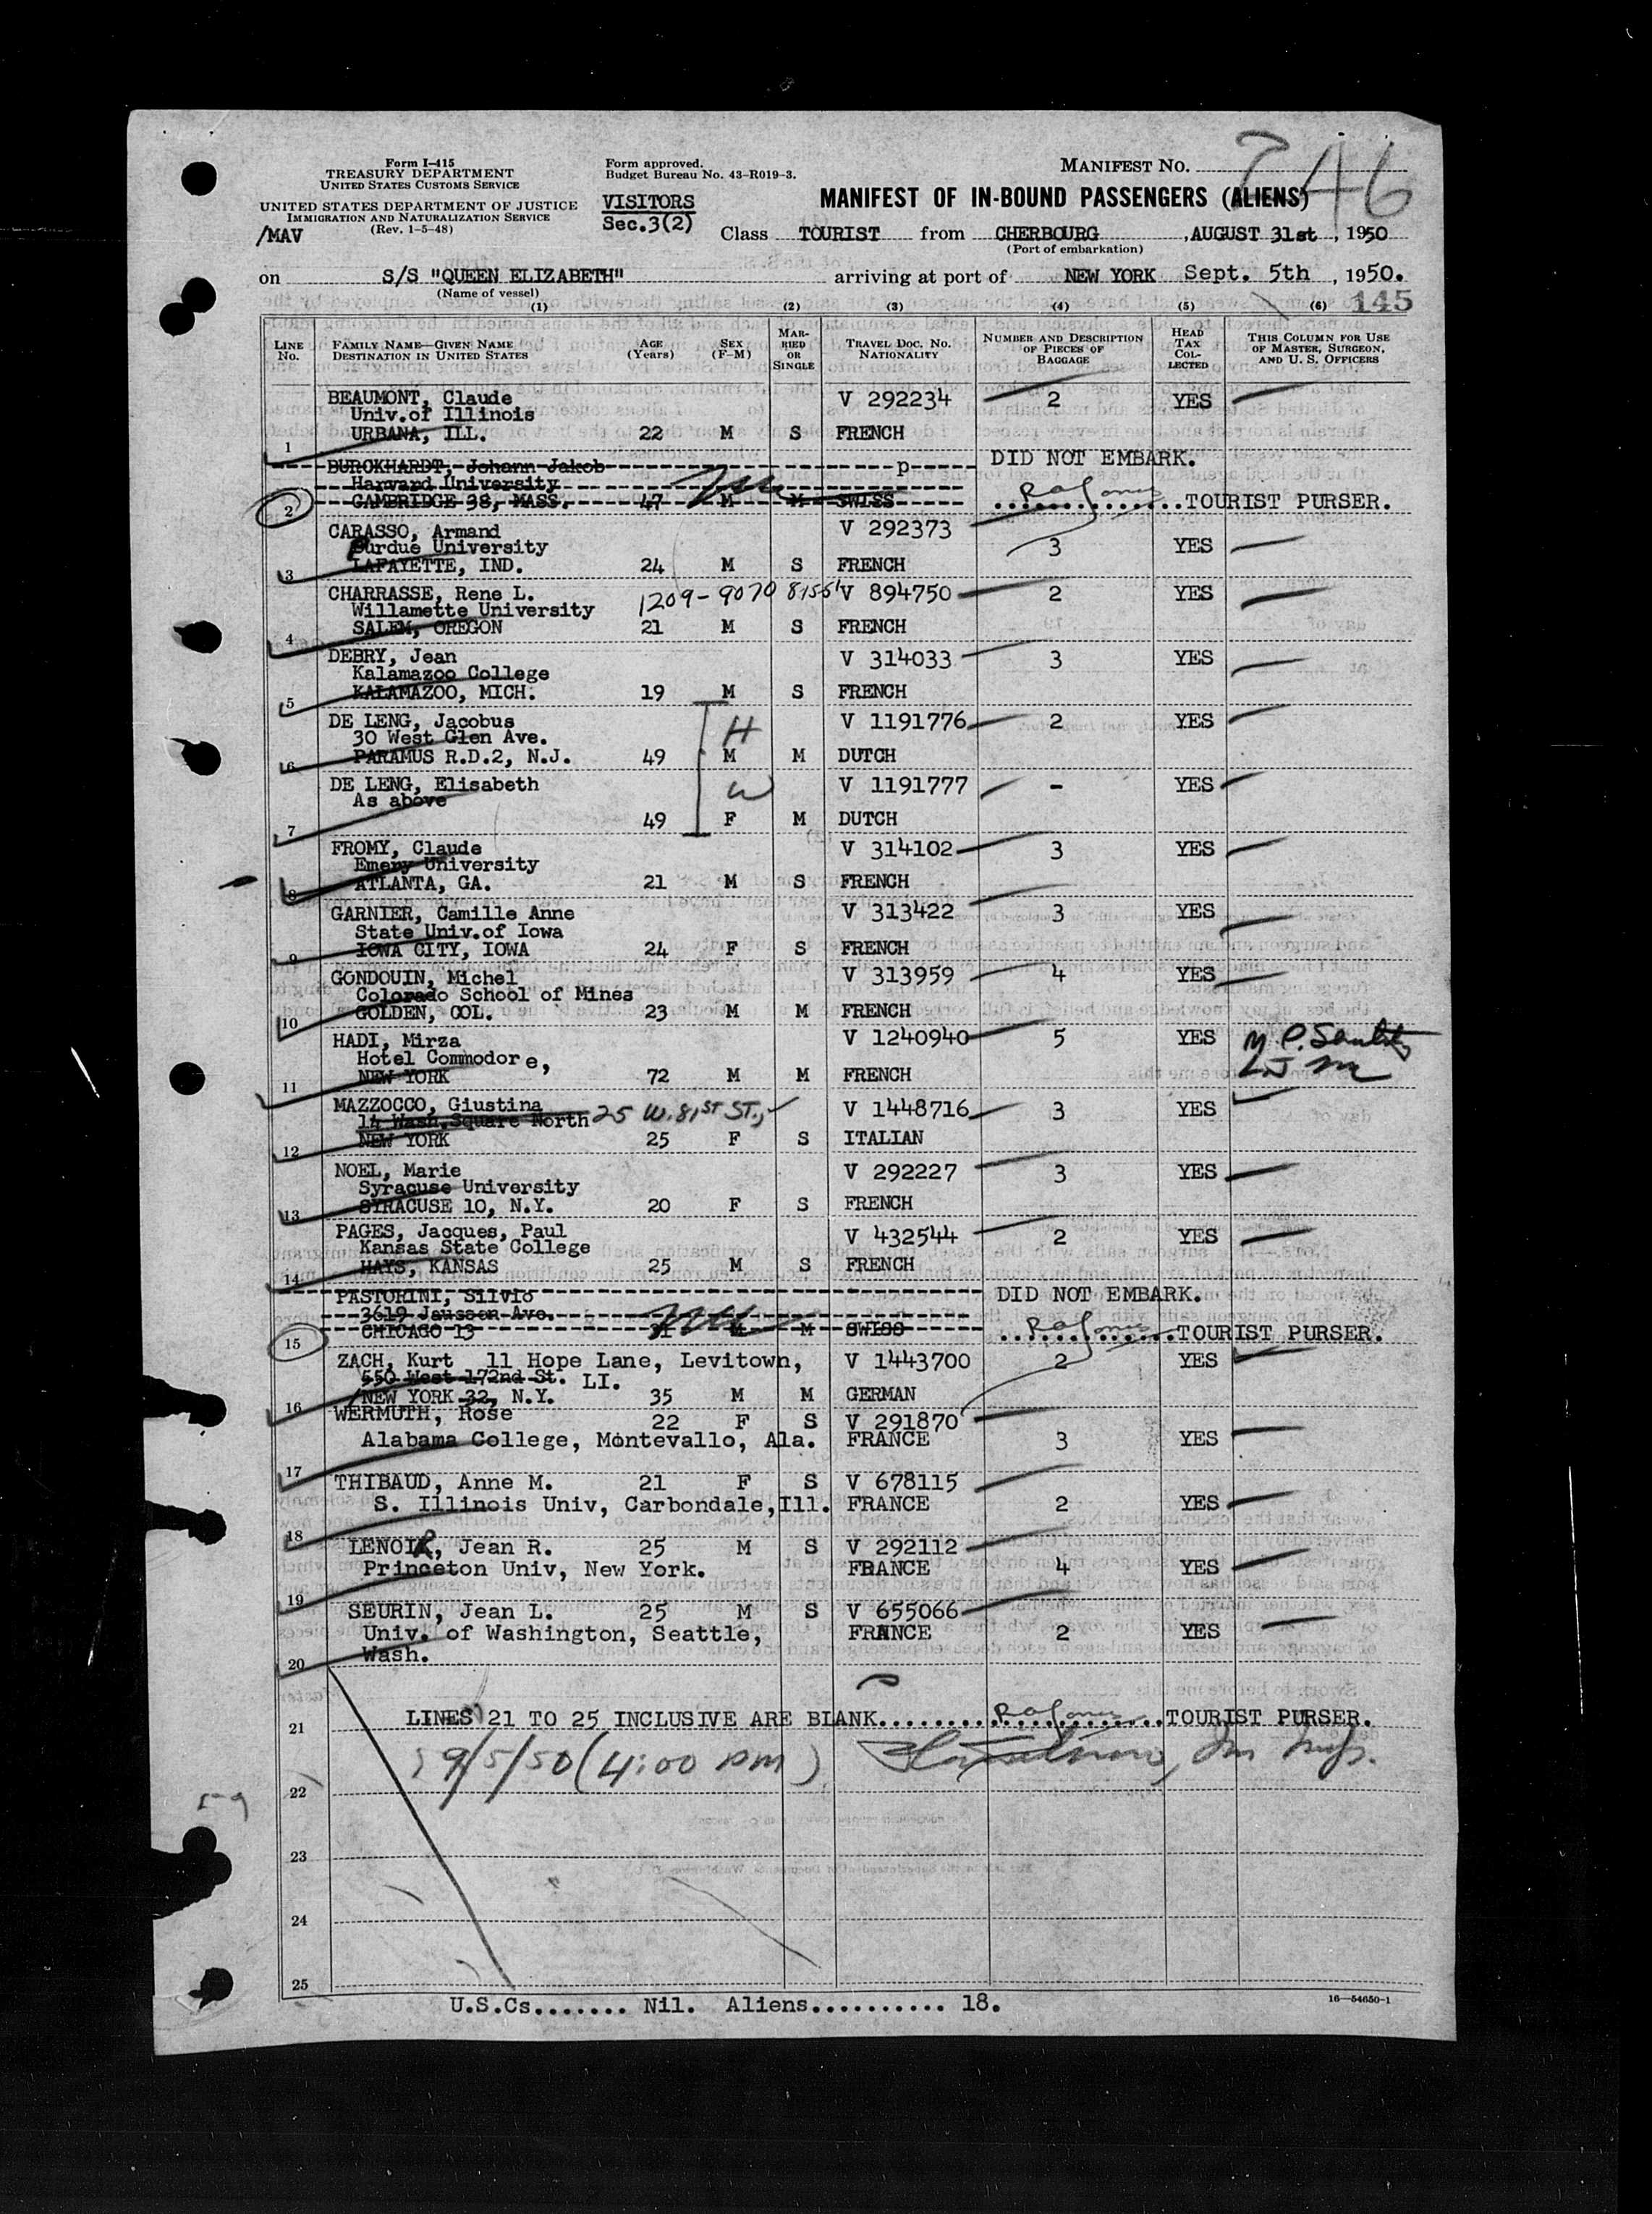 Form I-415
TREASURY DEPARTMENT
UNITED STATES CUSTOMS SERVICE
UNITED STATES DEPARTMENT OF JUSTICE
IMMIGRATION AND NATURALIZATION SERVICE
(Rev. 1-5-48)
/MAV
Form approved.
Budget Bureau No. 43-R019-3.
VISITORS
Sec.3(2)
MANIFEST NO. 46
MANIFEST OF IN-BOUND PASSENGERS (ALIENS)
Class TOURIST from CHERBOURG ,AUGUST 31st , 1950
(Port of embarkation)
on S/S "QUEEN ELIZABETH" arriving at port of NEW YORK Sept. 5th , 1950.
(Name of vessel)
145
(1) (2) (3) (4) (5) (6)
LINE No. FAMILY NAME—GIVEN NAME DESTINATION IN UNITED STATES AGE (Years) SEX (F-M) MARRIED OR SINGLE TRAVEL DOC. NO. NATIONALITY NUMBER AND DESCRIPTION OF PIECES OF BAGGAGE HEAD TAX COLLECTED THIS COLUMN FOR USE OF MASTER, SURGEON, AND U. S. OFFICERS
BEAUMONT, Claude V 292234 2 YES
Univ.of Illinois
1 URBANA, ILL. 22 M S FRENCH
BURCKHARDT, Johann Jakob p DID NOT EMBARK.
Harvard University
2 CAMBRIDGE 38, MASS. 47 M M SWISS TOURIST PURSER.
CARASSO, Armand V 292373
Purdue University 3 YES
3 LAFAYETTE, IND. 24 M S FRENCH
CHARRASSE, Rene L. V 894750 2 YES
Willamette University 1209-9070
4 SALEM, OREGON 21 M S FRENCH
DEBRY, Jean V 314033 3 YES
Kalamazoo College
5 KALAMAZOO, MICH. 19 M S FRENCH
DE LENG, Jacobus H V 1191776 2 YES
30 West Glen Ave.
6 PARAMUS R.D.2, N.J. 49 M M DUTCH
DE LENG, Elisabeth W V 1191777 - YES
As above
7 49 F M DUTCH
FROMY, Claude V 314102 3 YES
Emery University
8 ATLANTA, GA. 21 M S FRENCH
GARNIER, Camille Anne V 313422 3 YES
State Univ.of Iowa
9 IOWA CITY, IOWA 24 F S FRENCH
GONDOUIN, Michel V 313959 4 YES
Colorado School of Mines
10 GOLDEN, COL. 23 M M FRENCH
HADI, Mirza V 1240940 5 YES
Hotel Commodore,
11 NEW YORK 72 M M FRENCH
MAZZOCCO, Giustina V 1448716 3 YES
14 Wash.Square North 25 W. 81ST ST.,
12 NEW YORK 25 F S ITALIAN
NOEL, Marie V 292227 3 YES
Syracuse University
13 SYRACUSE 10, N.Y. 20 F S FRENCH
PAGES, Jacques, Paul V 432544 2 YES
Kansas State College
14 HAYS, KANSAS 25 M S FRENCH
PASTORINI, Silvio DID NOT EMBARK.
3619 Janssen Ave.
15 CHICAGO 13 M SWISS TOURIST PURSER.
ZACH, Kurt 11 Hope Lane, Levitown, V 1443700 2 YES
550 West 172nd St. LI.
16 NEW YORK 32, N.Y. 35 M M GERMAN
WERMUTH, Rose 22 F S V 291870
Alabama College, Montevallo, Ala. FRANCE 3 YES
17
THIBAUD, Anne M. 21 F S V 678115
S. Illinois Univ, Carbondale,Ill. FRANCE 2 YES
18
LENOIR, Jean R. 25 M S V 292112
Princeton Univ, New York. FRANCE 4 YES
19
SEURIN, Jean L. 25 M S V 655066
Univ. of Washington, Seattle, FRANCE 2 YES
20 Wash.
21 LINES 21 TO 25 INCLUSIVE ARE BLANK. TOURIST PURSER.
9/5/50 (4:00 pm)
22
23
24
25
U.S.Cs....... Nil. Aliens.......... 18.
16—54650-1